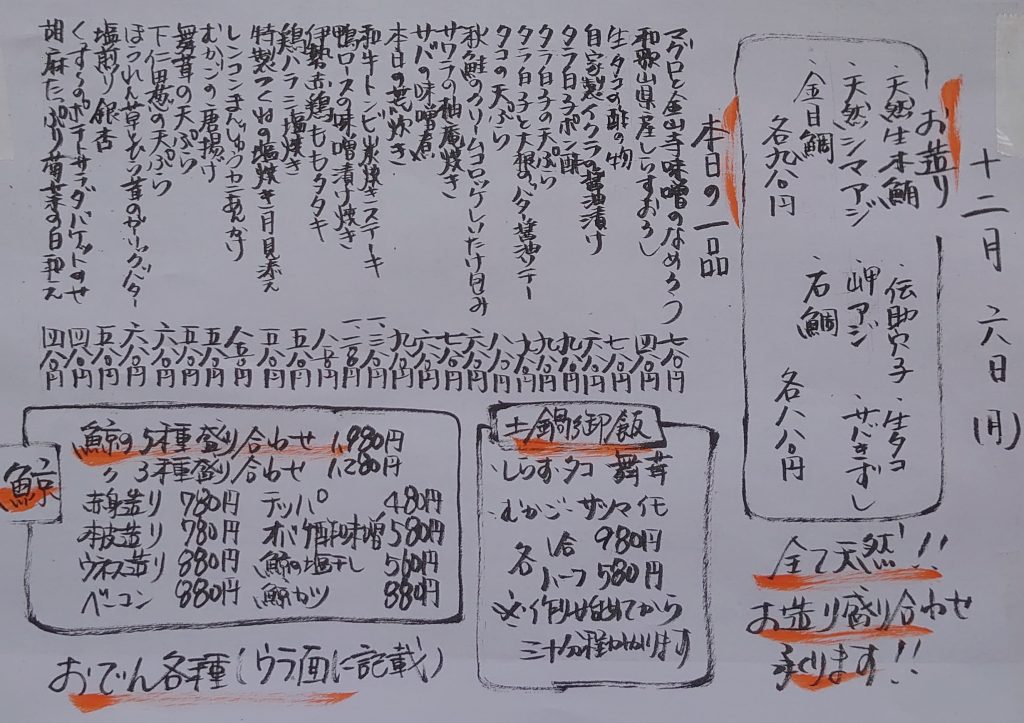 十二月 六日(月)
お造り
・天然生本鮪
・天然シマアジ
・金目鯛
各九八〇円
・伝助穴子 ・生タコ
・岬アジ ・サバきずし
・石鯛
各八八〇円
全て天然!!
お造り盛り合わせ
承ります!!
本日の一品
マグロと金山寺味噌のなめろう 七八〇円
和歌山県産しらすおろし 四八〇円
生タコの酢の物 七八〇円
自家製イクラの醤油漬け
タラ白子ポン酢 九八〇円
タラ白子の天ぷら 九八〇円
タラ白子と大根のバター醤油ソテー 九八〇円
タコの天ぷら 八八〇円
秋鮭のクリームコロッケしいたけ包み
サワラの柚庵焼き 七八〇円
サバの味噌煮 六八〇円
本日の荒炊き 九八〇円
和牛トンビ炭焼きステーキ
鴨ロースの味噌漬け焼き
伊勢赤鶏ももタタキ
鶏ハラミ塩焼き 五八〇円
特製つくねの塩焼き月見添え 五八〇円
レンコンまんじゅうカニあんかけ
むかごの唐揚げ 五八〇円
舞茸の天ぷら 五八〇円
下仁田葱の天ぷら 六八〇円
ほうれん草とひら茸のガーリックバター 六八〇円
塩煎り銀杏 五八〇円
くずし手のポテトサラダバケットのせ 四八〇円
胡麻たっぷり菊菜の白和え 四八〇円
土鍋御飯
・しらす・タコ・舞茸
・むかご・サツマイモ
各 1合 980円
ハーフ 580円
※作り始めてから
三十分程かかります
鯨
鯨の5種盛り合わせ 1,980円
〃 3種盛り合わせ 1,280円
赤身造り 780円 テッパ 480円
本皮造り 780円 オバケ酢和味増 580円
ウネス造り 880円 鯨の塩干し 560円
ベーコン 880円 鯨カツ 880円
おでん各種(ウラ面に記載)